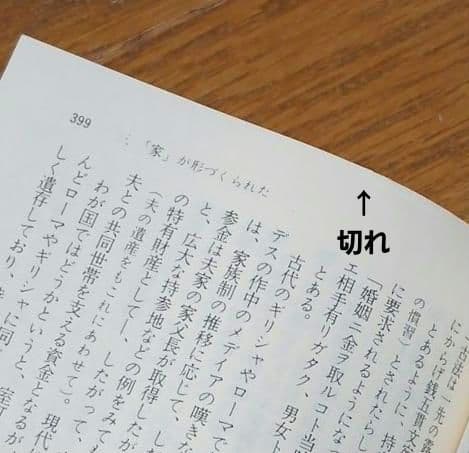 399
「家」が形づくられた
↑
切れ
にからげ銭五貫文定
とあるように、持
の慣習）とされたらし
に要求されるようになっ
「婚姻ニ金ヲ取ルコト当
エ相手有リカタク、男女ト
とある。
古代のギリシャやローマで
デスの作中のメディアの嘆きな
は、家族制の推移に応じて、し
参金は夫家の家父長が取得したが
と、広大な持参地などの例をみても
の特有財産として、したがって、
（夫の遺産もこれにあわせて）。現代
夫との共同世帯を支える資金となるが
わが国ではどうかというと、室町
んどローマやギリシャに同
しく遺存しており、